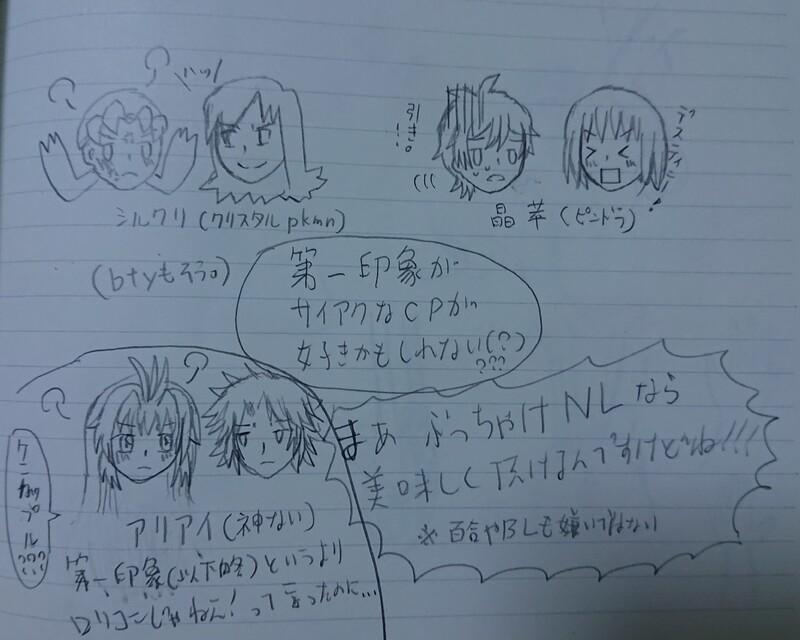 ハッ
シルクリ(クリスタルpkmn)
引き。
デスティニー
晶苹(ピンドラ)
(btyもそう。)
第一印象が
サイアクなCPが
好きかもしれない(?)
???
まあ ぶっちゃけNLなら
美味しく頂けるんですけどね!!!
※百合やBLも嫌いではない
アリアイ(神ない)
第一印象(以下略)というより
ロリコンじゃねえ!って言ったのに…